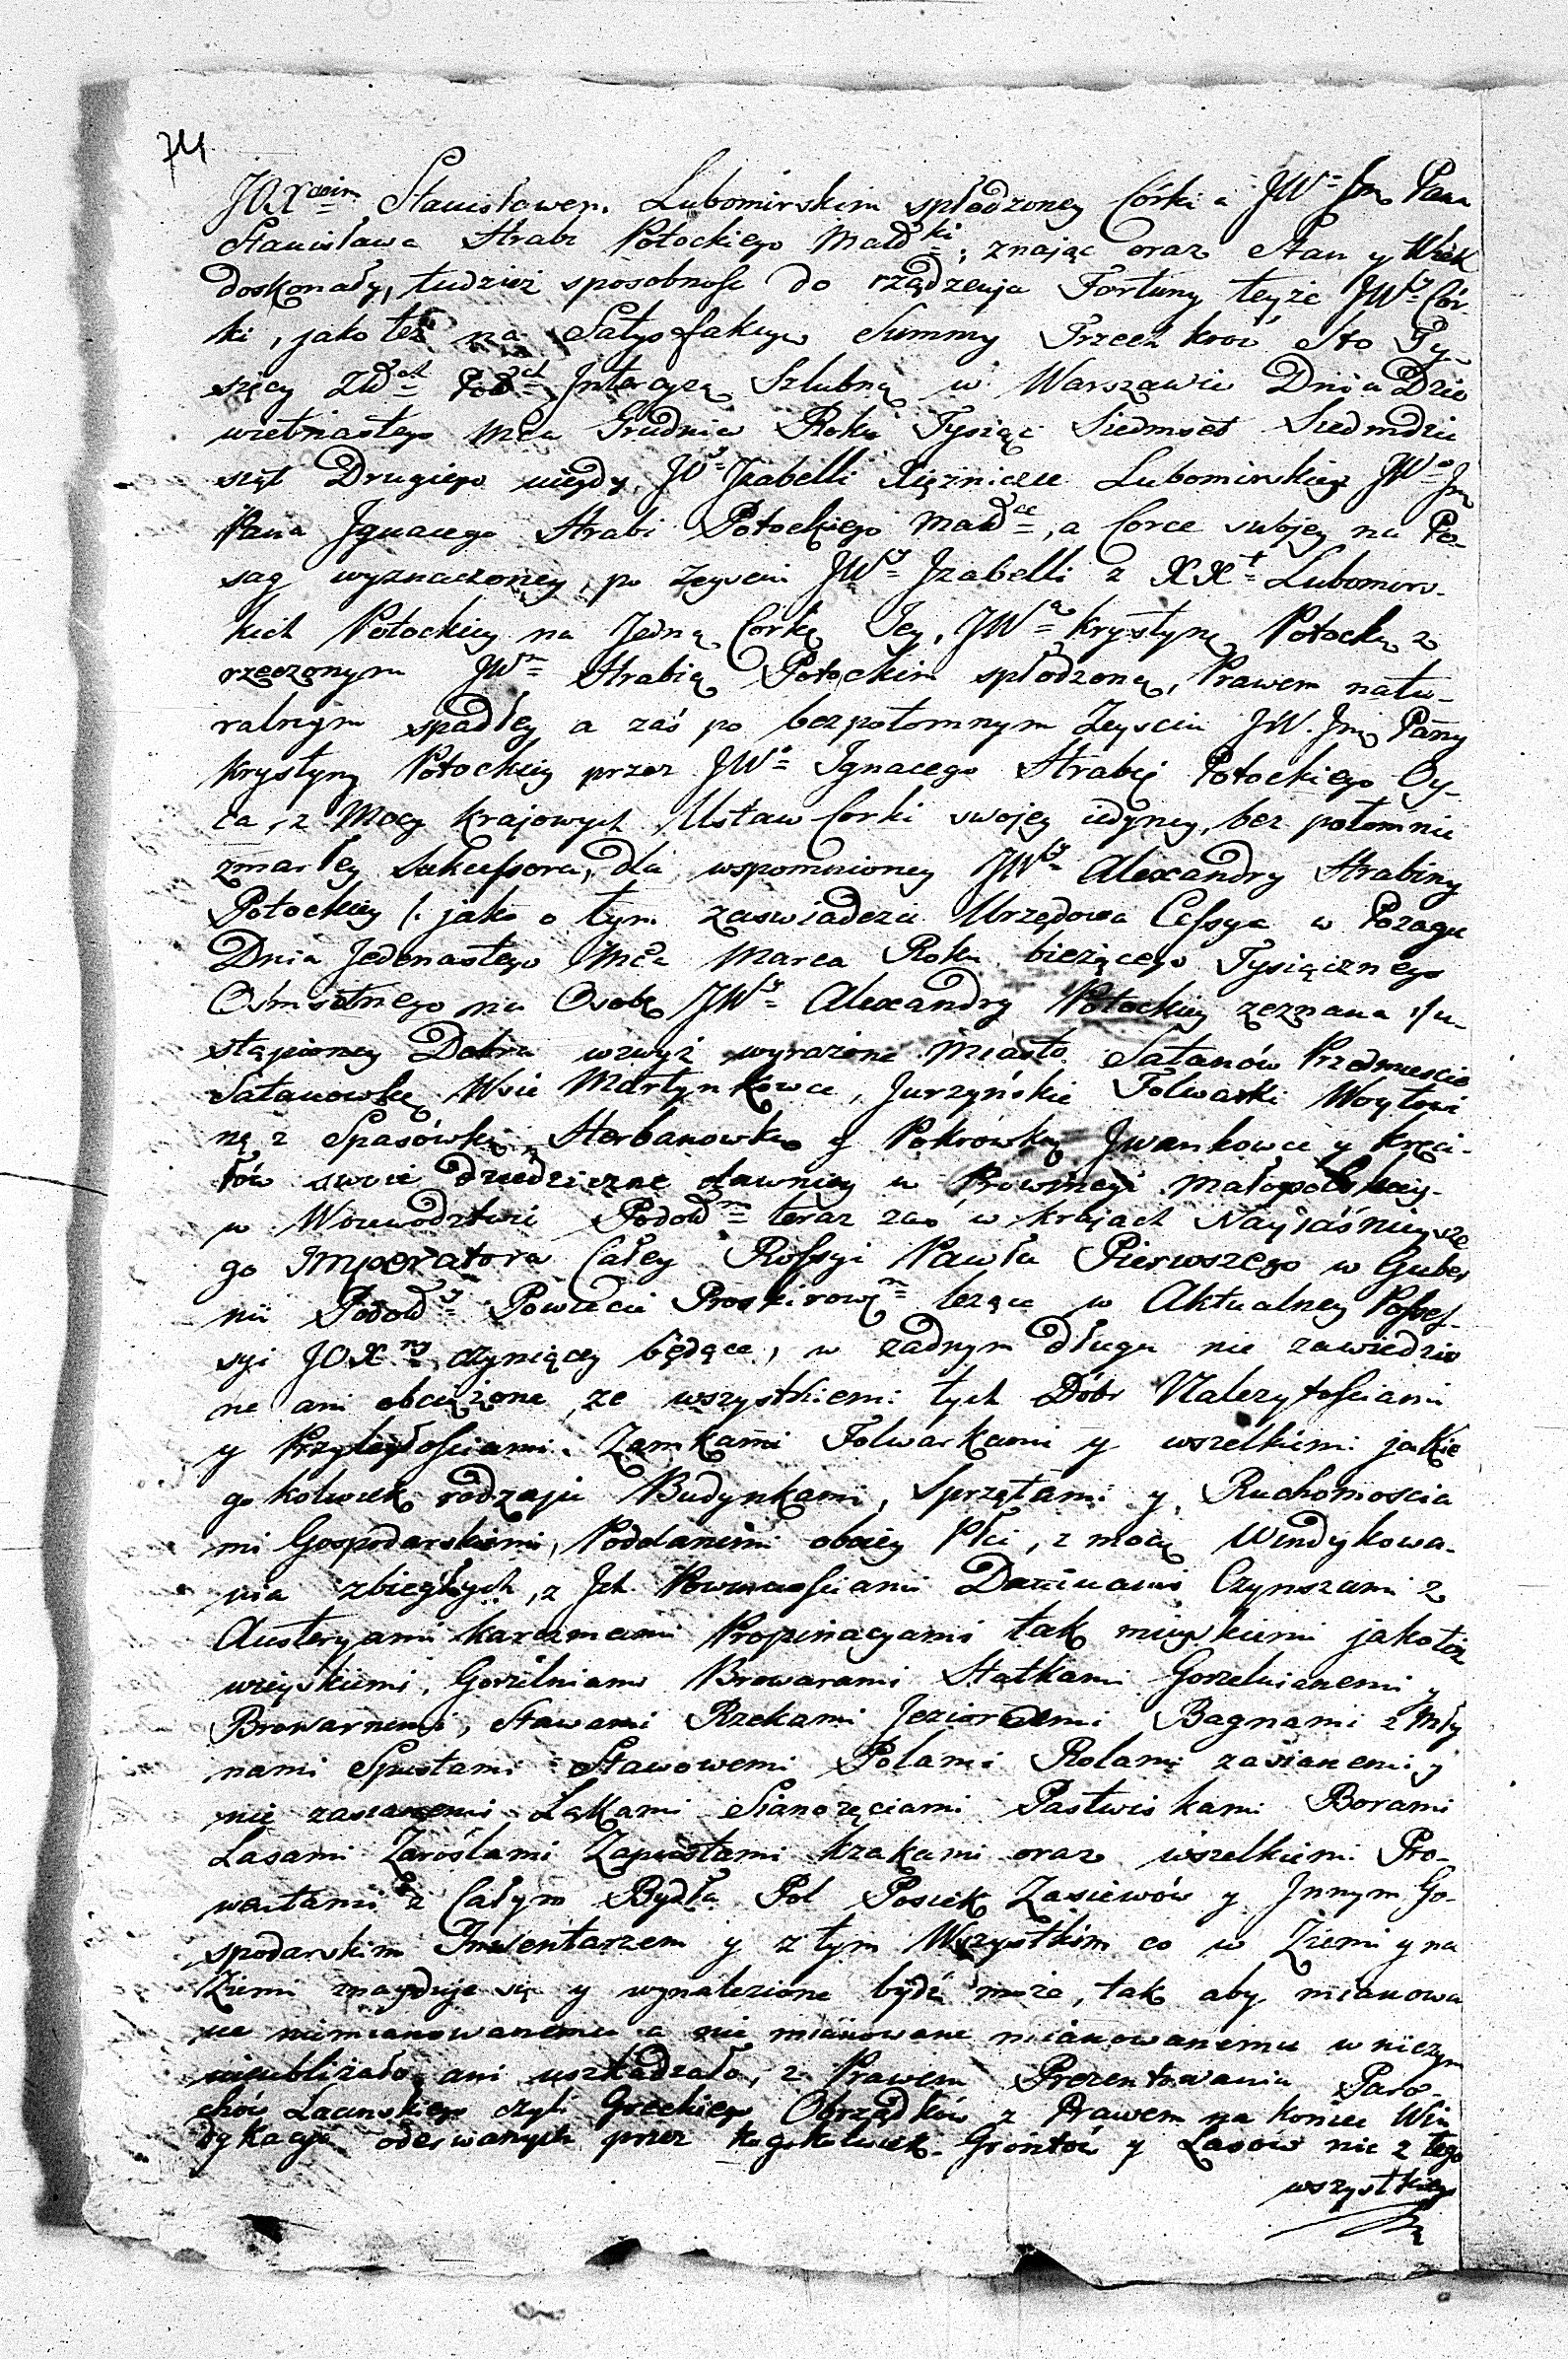 74
JOXcim Stanisławem Lubomirskim spłodzoney Córki a JWo Jmę Pana
Stanisława Hrabi Potockiego Małdki, znając oraz Stan y Wiek
doskonały, tudzież sposobność do rządzenia Fortuny teyże JWy Cór-
ki, jako też na Satysfakcyę Summy Trzech kroć Sto Ty-
sięcy Złdch Poldch Intercyzą Szlubną w Warszawie Dnia Dzie
wietnastego Mca Grudnia Roku Tysiąc Siedmset Siedmdzie
siąt Drugiego między JWy Izabelli Xiężniczce Lubomirskiey JWo Jmę
Pana Ignacego Hrabi Potockiego Małdce, a Corce swojey na Po-
sag wyznaczoney, po Zeysciu JWy Izabelli z XXt Lubomirs-
kich Potockiey na Jedną Corkę Jey, JWą Krystynę Potocką z
rzeczonym JWm Hrabią Potockim spłodzoną, Prawem natu-
ralnym spadłey a zaś po bezpotomnym Zeysciu JW. Jmę Panny
Krystyny Potockiey przez JWo Ignacego Hrabię Potockiego Oy-
ca, z Mocy Krajowych Ustaw Corki swojey jedyney, bez potomnie
zmarłey Sukcessora, dla wspomnioney JWy Alexandry Hrabiny
Potockiey /: jako o tym zaswiadcza Urzędowa Cessya w Pozagu
Dnia Jedenastego Mca Marca Roku bieżącego Tysiącznego
Osmsetnego na Osobę JWy Alexandry Potockiey zeznana :/ u-
stąpioney Dobra wzwyż wyrażone Miasto Satanów Przedmiescie
Satanowkę Wsie Martynkówce, Jurzyńskie Folwarki Woytowi
nę z Spasówką, Herbanowką y Pokrówką Iwankowce y Kręci-
łów swoie dziedziczne dawniey w Prowincyi Małopolskiey
w Woiewodztwie Podoldm teraz zaś w Krajach Nayiaśnieysze
go Imperatora Całey Rossyi Pawła Pierwszego w Guber
nii Podoldy Powiecie Proskirowm leżące w Aktualney Possес-
syi JOXny czyniącey będące, w żadnym długu nie zawiedzio
ne ani obciążone ze wszystkiemi tych Dóbr Należytościami
y Przyległościami, Zamkami Folwarkami y wszelkiemi jakie
gokolwiek rodzaju Budynkami, Sprzętami y Ruchomoscia
mi Gospodarskiemi, Poddanemi oboiey Płci, z mocą Windykowa-
nia zbiegłych, z Jch Powinnościami Daninami Czynszami z
Austeryami Karczmami Propinacyami tak mieyskiemi jakoteż
wieyskiemi, Gorzelniami Browarami Statkami Gorzelnianemi y
Browarnemi, Stawami Rzekami Jeziorami Bagnami z Mły
nami Spustami Stawowemi Polami Rolami zasianemi y
nie zasianemi Łąkami Sianożęciami Pastwiskami Borami
Lasami Zaroślami Zapustami Krzakami oraz wszelkiemi Pro-
wentami z Całym Bydła Pol Posiek Zasiewów y Jnnym Go-
spodarskim Jnwentarzem y z tym Wszystkim co w Ziemi y na
Ziemi znayduje się y wynalezione bydź może, tak aby mianowa
ne niemianowanemu a nie mianowane mianowanemu w niczym
nieubliżało, ani uszkadzało, z Prawem Prezentowania Paro-
chów Łacinskiego czyli Greckiego Obrządków z Prawem na koniec Win
dykacyi oderwanych przez kogokolwiek Gróntów y Lasów nic z tego
wszystkiego